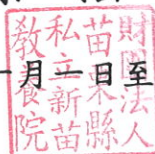 財團法人
苗栗縣
私立新苗
教養院
月一日至